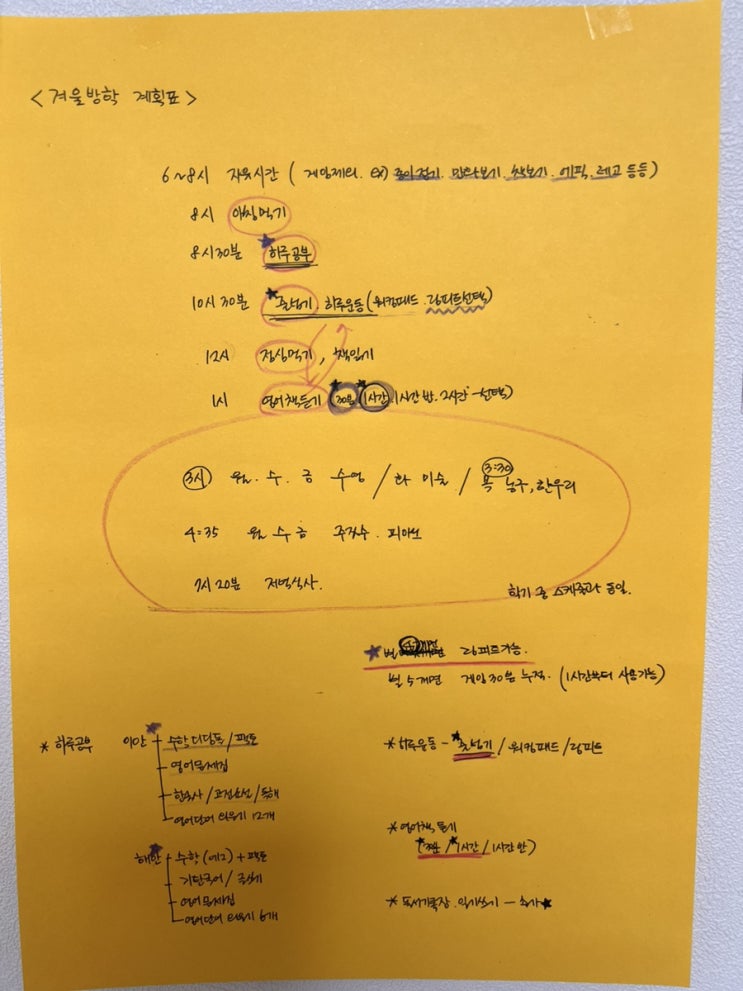 <겨울방학 계획표>
6~8시 자유시간 (게임제외. ex) 종이접기. 만화보기. 책보기. 에픽. 레고 등등)
8시 아침먹기
8시30분 ★하루공부
10시30분 ★줄넘기. 하루운동 (워킹패드. 링피트선택)
12시 점심먹기, 책읽기
1시 영어책듣기 (★30분 ★1시간 1시간 반. 2시간-선택)
3시 월. 수. 금 수영 / 화 미술 / 3:30 목 농구, 한우리
4:35 월 수 금 주짓수. 피아노
7시 20분 저녁식사.
학기 중 스케줄과 동일.
★별 링피트가능.
별 5개면 게임 30분 누적. (1시간부터 사용가능)
*하루공부
이안 ★
수학 디딤돌/팩토
영어문제집
한국사/고전순선/독해
영어단어 외우기 12개
해안 ★
수학 (예2) + 팩토
기탄국어/
영어문제집
영어단어 외우기 6개
*하루운동 - ★줄넘기/워킹패드/링피트
*영어책 듣기
(★30분/★1시간/1시간 반)
*독서기록장. 일기쓰기 - 추가★